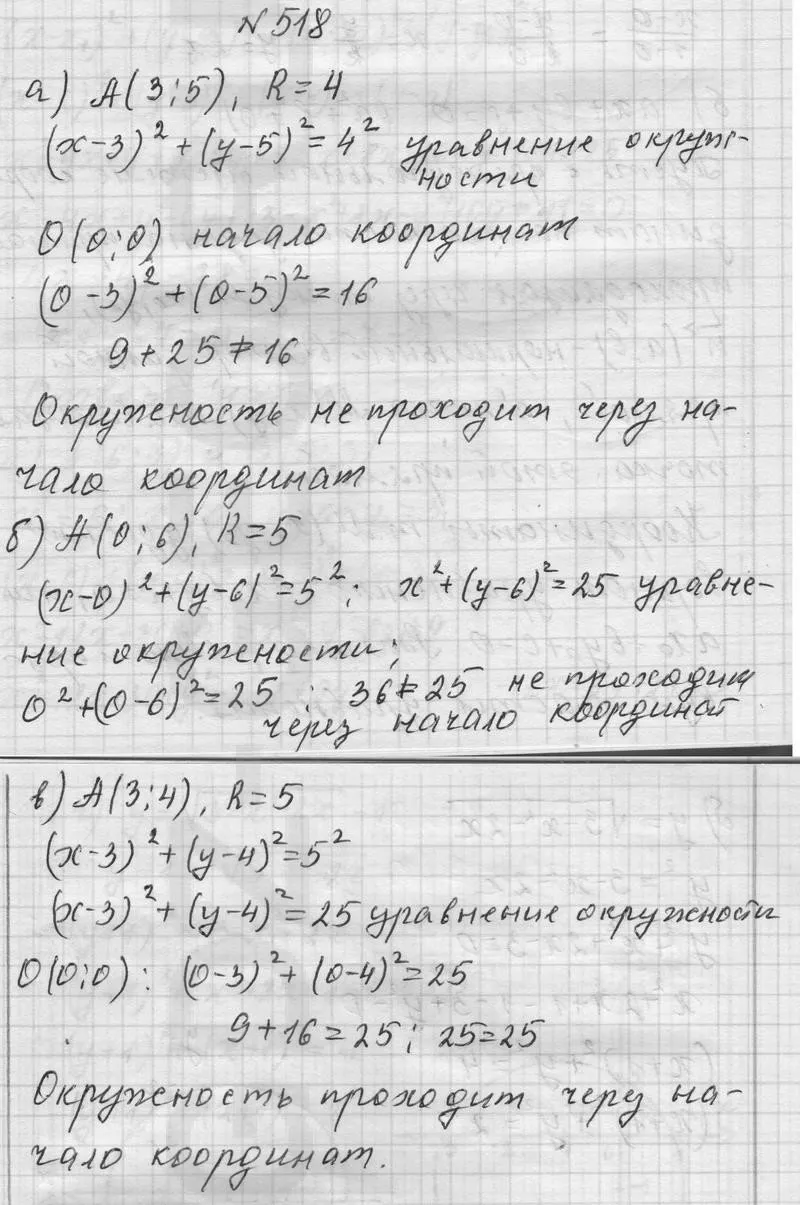 № 518
а) А(3;5), R=4
(х-3)²+(у-5)²=4² уравнение окруж-
ности
О(0;0) начало координат
(0-3)²+(0-5)²=16
9+25≠16
Окруженость не проходит через на-
чало координат
б) А(0;6), R=5
(х-0)²+(у-6)²=5²; х²+(у-6)²=25 уравне-
ние окружености;
0²+(0-6)²=25; 36≠25 не проходит
через начало координат
в) А(3;4), R=5
(х-3)²+(у-4)²=5²
(х-3)²+(у-4)²=25 уравнение окружности
О(0;0): (0-3)²+(0-4)²=25
9+16=25; 25=25
Окруженость проходит через на-
чало координат.